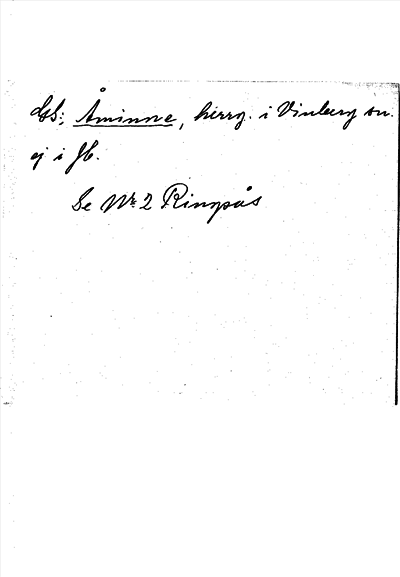 GS: Åminne, herrg. i Vinberg sn.
ej i Jb.
Se Nr 2 Ringsås